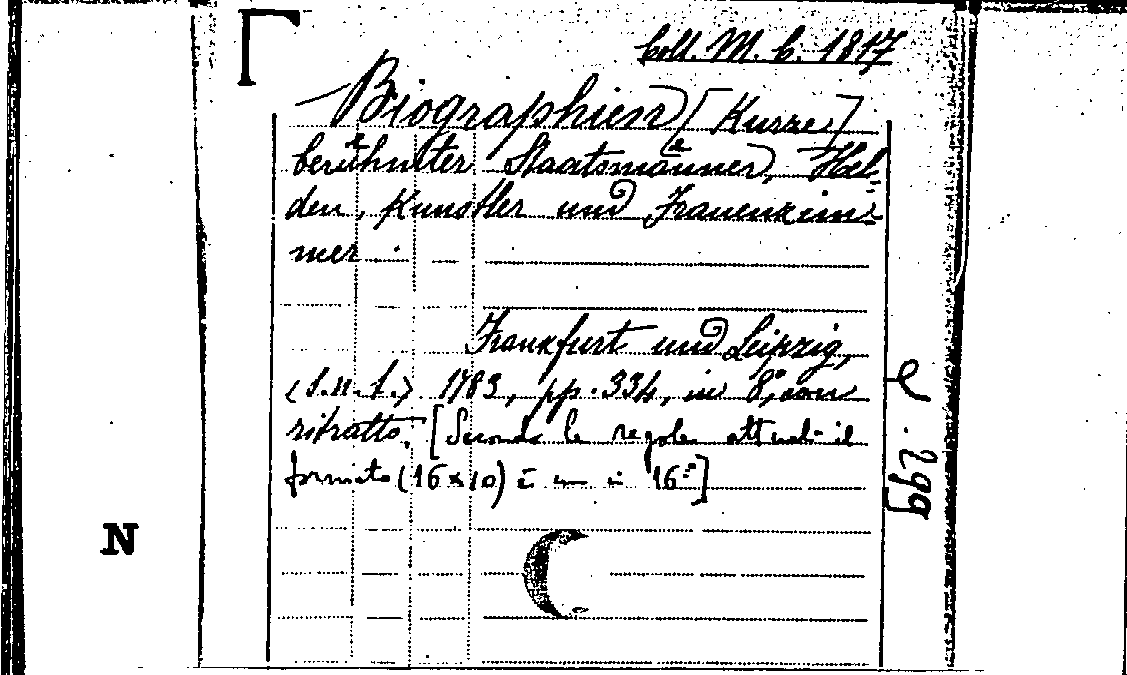 Coll. M. b. 1817
Biographien [Kurze]
berühmter Staatsmänner, Hel-
den, Künstler und Frauenzim-
mer.
Frankfurt und Leipzig,
(s.n.t.) 1783, pp. 334, in 8°, con
ritratto. [Secondo le regole attuali il
formato (16x10) è un in 16°]
e. 299
N